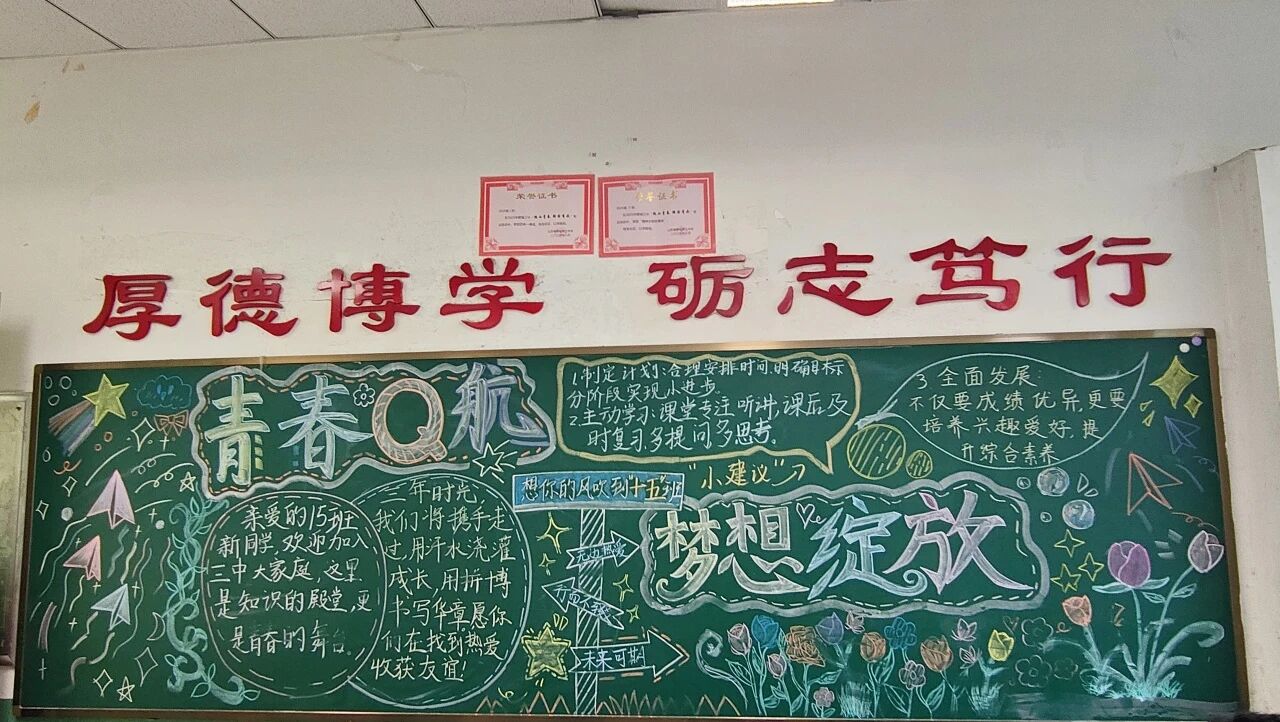 荣誉证书
荣誉证书
厚德博学 砺志笃行
青春Q航
1.制定计划:合理安排时间,明确目标
分阶段实现小进步.
2.主动学习:课堂专注听讲,课后及
时复习,多提问多思考.
3 全面发展:
不仅要成绩优异,更要
培养兴趣爱好,提
升综合素养
"小建议"
想你的风吹到十五班
亲爱的15班
新同学,欢迎加入
三中大家庭,这里
是知识的殿堂,更
是青春的舞台,
三年时光,
我们将携手走
过,用汗水浇灌
成长,用拼搏
书写华章愿你
们在找到热爱,
收获友谊!
梦想绽放
无边热爱
未来可期